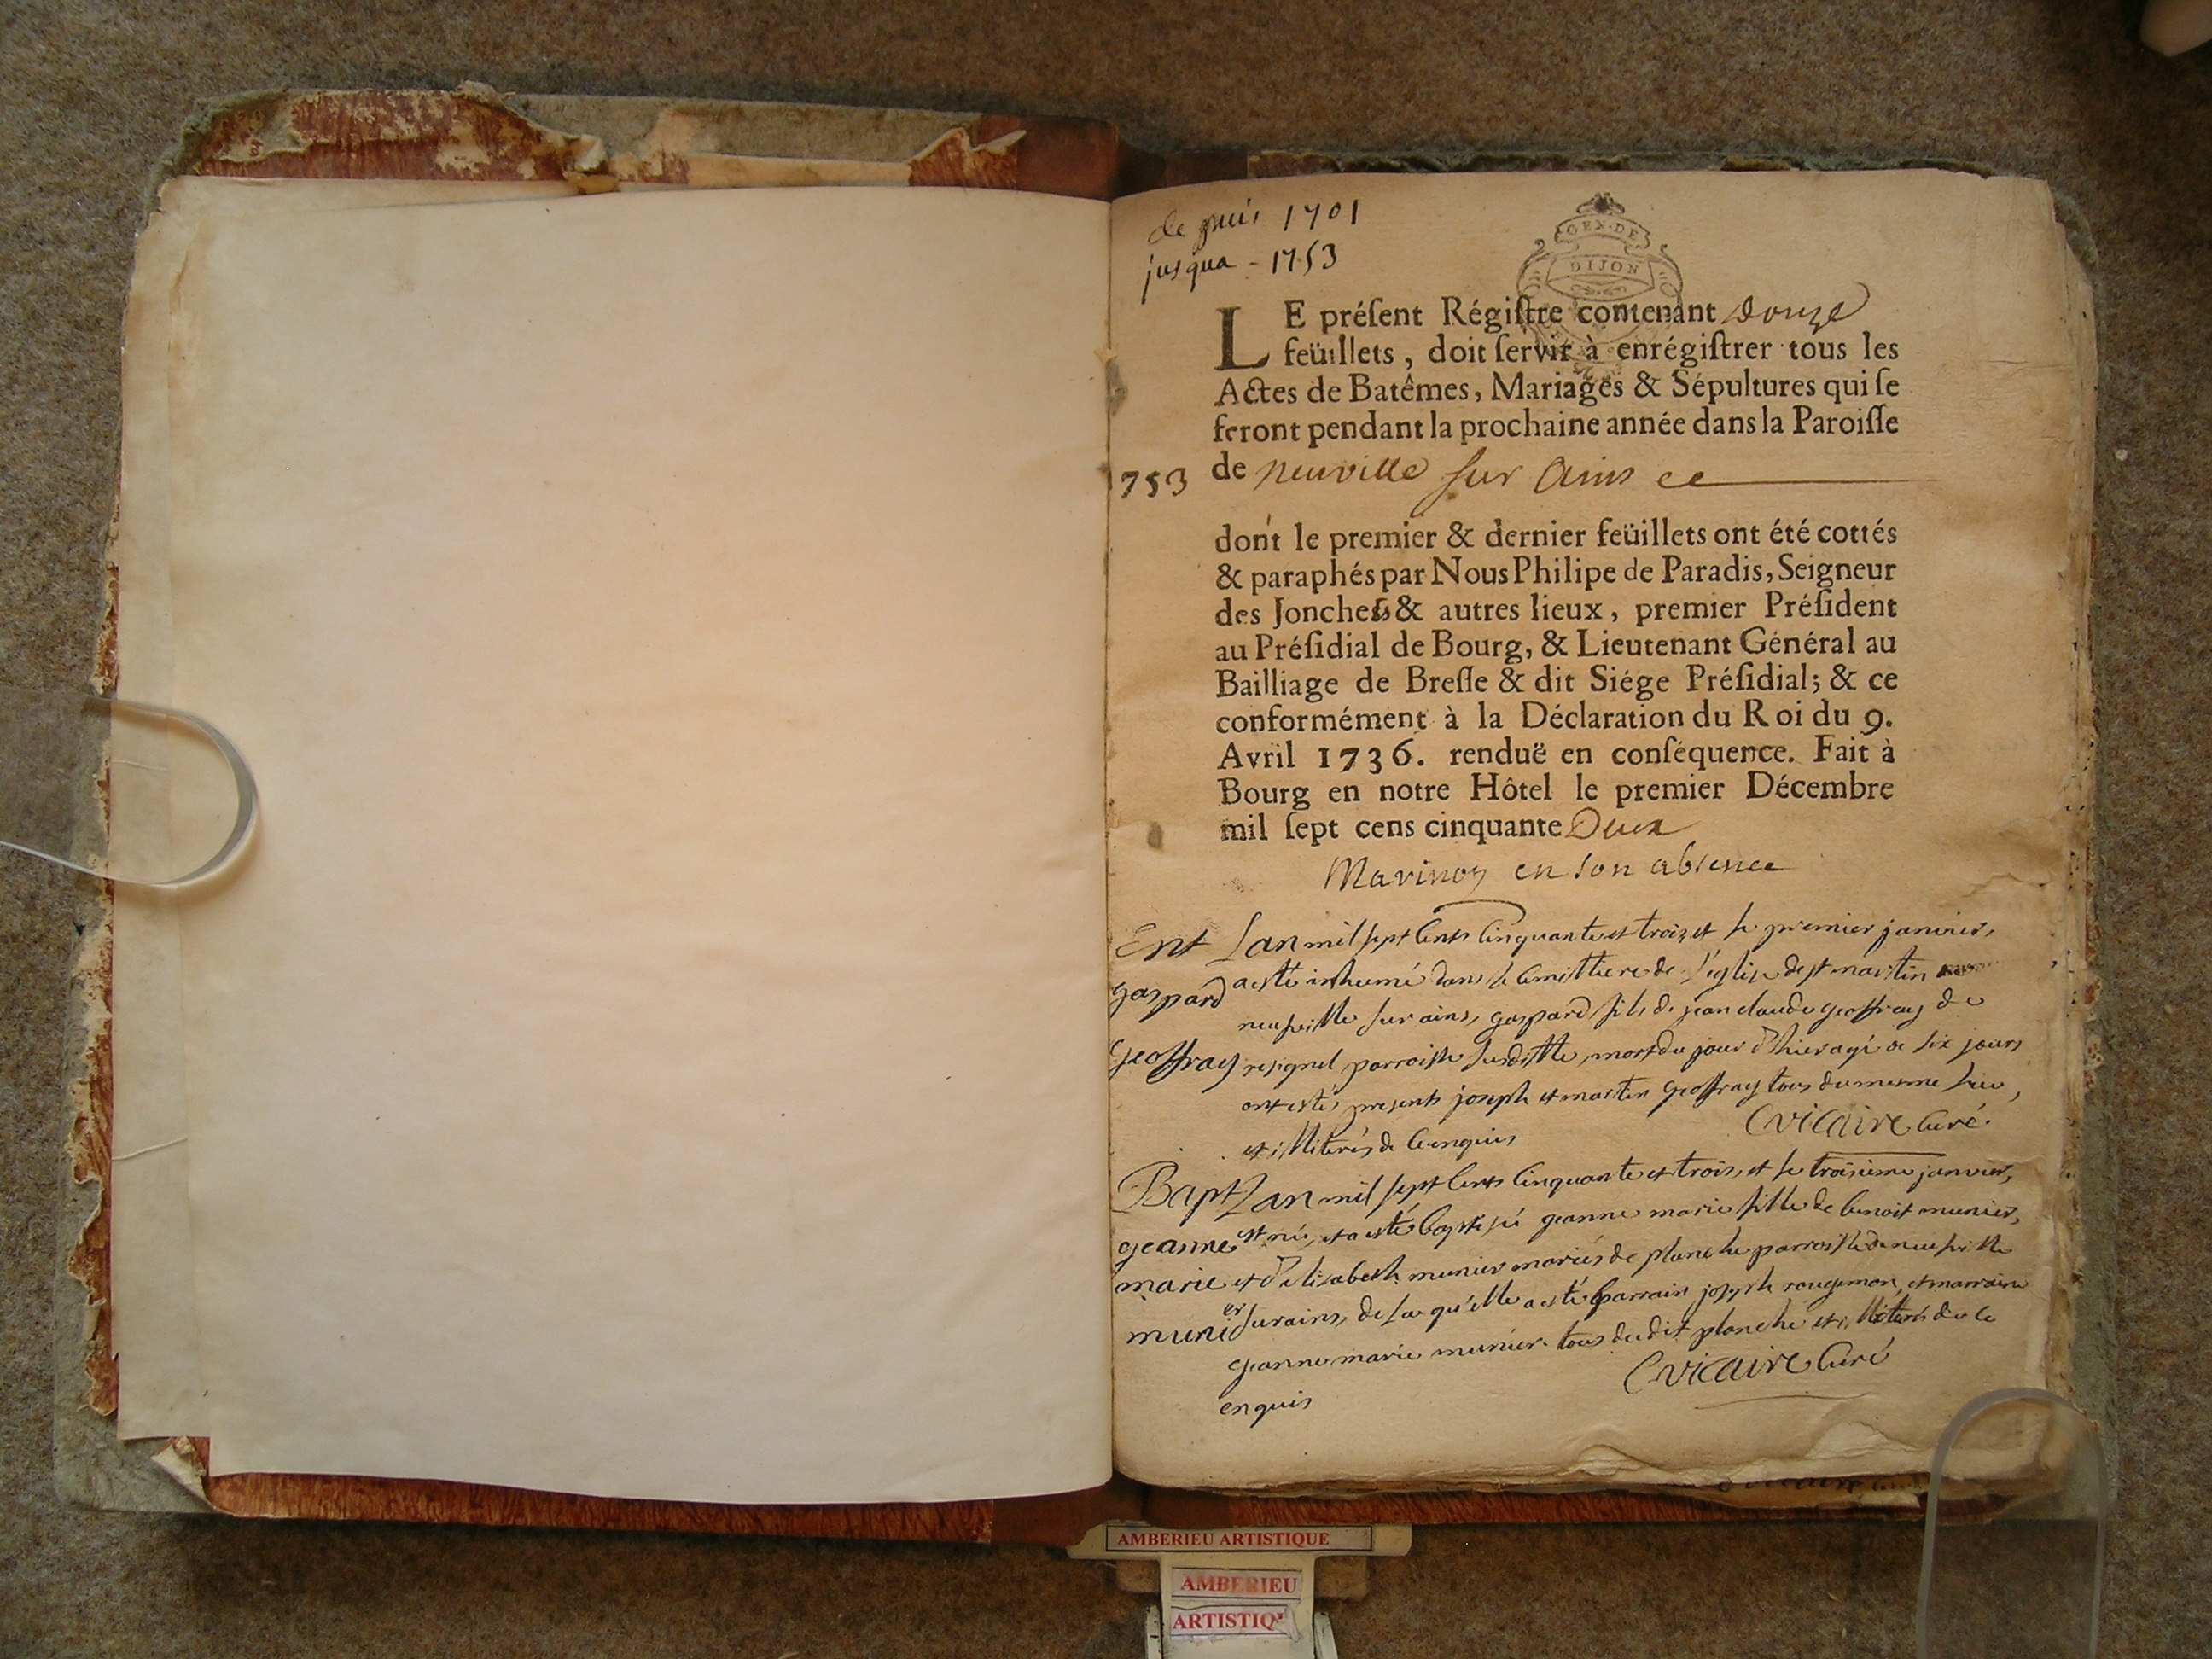 de puis 1701
jusqua - 1753
GEN. DE
DIJON
LE préſent Régiſtre contenant douze
feüillets, doit ſervir à enrégiſtrer tous les
Actes de Batêmes, Mariages & Sépultures qui ſe
feront pendant la prochaine année dans la Paroiſſe
753 de neuville sur Ains ce
dont le premier & dernier feüillets ont été cottés
& paraphés par Nous Philipe de Paradis, Seigneur
des Jonches & autres lieux, premier Préſident
au Préſidial de Bourg, & Lieutenant Général au
Bailliage de Breſſe & dit Siége Préſidial; & ce
conformément à la Déclaration du Roi du 9.
Avril 1736. renduë en conſéquence. Fait à
Bourg en notre Hôtel le premier Décembre
mil ſept cens cinquante Deux
en son absence
Ent Lan mil sept cents cinquante et trois et le premier janvier,
gaspard a esté inhumé dans le cimittiere de l'eglise de st martin
neufville sur ains, gaspard fils de jean claude geoffray de
geoffray resignel parroisse susditte, mort du jour d'hier agé de six jours
ont estés presents joseph et martin geoffray tous du mesme lieu,
et illiterés de ce enquis Cvicaire curé.
Bapt Lan mil sept cents cinquante et trois, et le troisieme janvier,
geanne est née, et a esté baptisée geanne marie fille de benoit munier,
marie et d'elisabeth munier mariés de planche parroisse de neufville
munier sur ains, de laquelle a esté parrain joseph rougemon, et marraine
geanne marie munier tous dudit planche et illiterés de ce
enquis Cvicaire curé
AMBERIEU ARTISTIQUE
AMBERIEU
ARTISTIQ